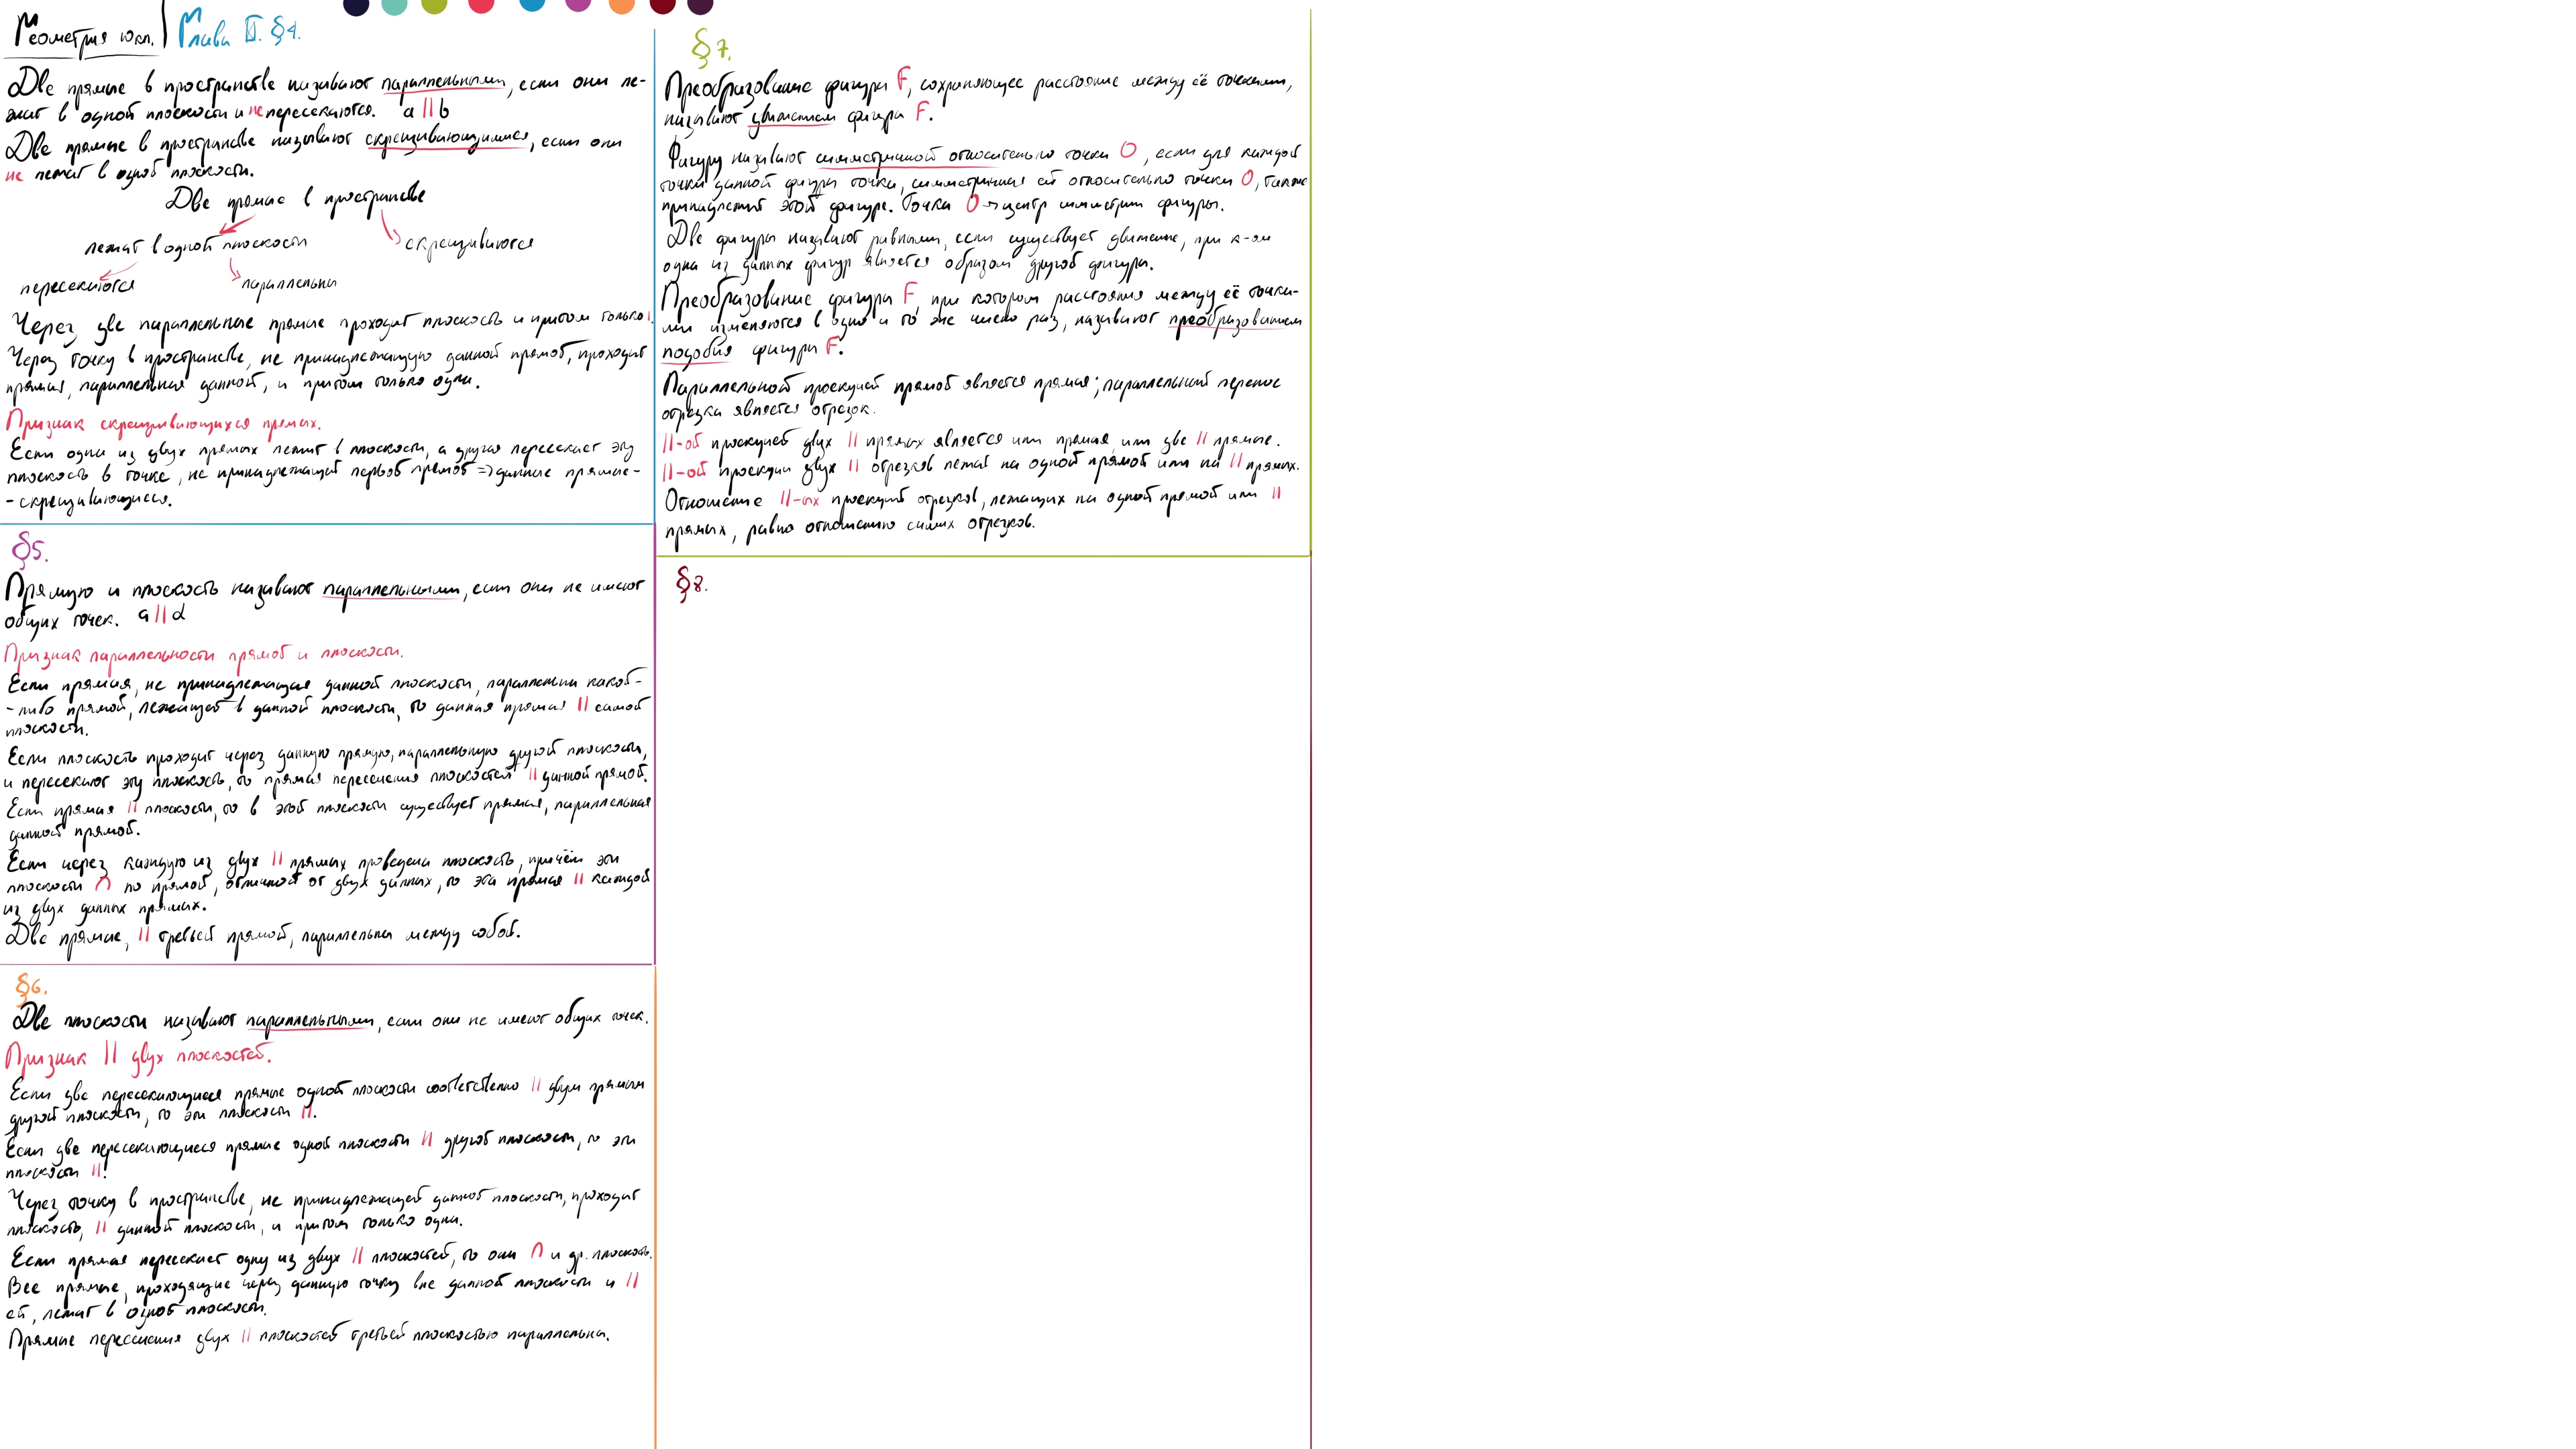 Геометрия 10 кл. Глава II. §4.
Две прямые в пространстве называют параллельными, если они ле-
жат в одной плоскости и не пересекаются. a || b
Две прямые в пространстве называют скрещивающимися, если они
не лежат в одной плоскости.
Две прямые в пространстве
лежат в одной плоскости скрещиваются
пересекаются параллельны
Через две параллельные прямые проходит плоскость и притом только 1.
Через точку в пространстве, не принадлежащую данной прямой, проходит
прямая, параллельная данной, и притом только одна.
Признак скрещивающихся прямых.
Если одна из двух прямых лежит в плоскости, а другая пересекает эту
плоскость в точке, не принадлежащей первой прямой => данные прямые -
- скрещивающиеся.
§5.
Прямую и плоскость называют параллельными, если они не имеют
общих точек. a || α
Признак параллельности прямой и плоскости.
Если прямая, не принадлежащая данной плоскости, параллельна какой-
-либо прямой, лежащей в данной плоскости, то данная прямая || самой
плоскости.
Если плоскость проходит через данную прямую, параллельную другой плоскости,
и пересекает эту плоскость, то прямая пересечения плоскостей || данной прямой.
Если прямая || плоскости, то в этой плоскости существует прямая, параллельная
данной прямой.
Если через каждую из двух || прямых проведена плоскость, причём эти
плоскости ∩ по прямой, отличной от двух данных, то эта прямая || каждой
из двух данных прямых.
Две прямые, || третьей прямой, параллельны между собой.
§6.
Две плоскости называют параллельными, если они не имеют общих точек.
Признак || двух плоскостей.
Если две пересекающиеся прямые одной плоскости соответственно || двум прямым
другой плоскости, то эти плоскости ||.
Если две пересекающиеся прямые одной плоскости || другой плоскости, то эти
плоскости ||.
Через точку в пространстве, не принадлежащей данной плоскости, проходит
плоскость, || данной плоскости, и притом только одна.
Если прямая пересекает одну из двух || плоскостей, то они ∩ и др. плоскость.
Все прямые, проходящие через данную точку вне данной плоскости и ||
ей, лежат в одной плоскости.
Прямые пересечения двух || плоскостей третьей плоскостью параллельны.
§7.
Преобразование фигуры F, сохраняющее расстояние между её точками,
называют движением фигуры F.
Фигуру называют симметричной относительно точки O, если для каждой
точки данной фигуры точка, симметричная ей относительно точки O, также
принадлежит этой фигуре. Точка O → центр симметрии фигуры.
Две фигуры называют равными, если существует движение, при к-ом
одна из данных фигур является образом другой фигуры.
Преобразование фигуры F, при котором расстояния между её точка-
ми изменяются в одно и то же число раз, называют преобразованием
подобия фигуры F.
Параллельной проекцией прямой является прямая; параллельный перенос
отрезка является отрезок.
||-ой проекцией двух || прямых является или прямая или две || прямые.
||-ой проекции двух || отрезков лежат на одной прямой или на || прямых.
Отношение ||-ых проекций отрезков, лежащих на одной прямой или ||
прямых, равно отношению самих отрезков.
§8.